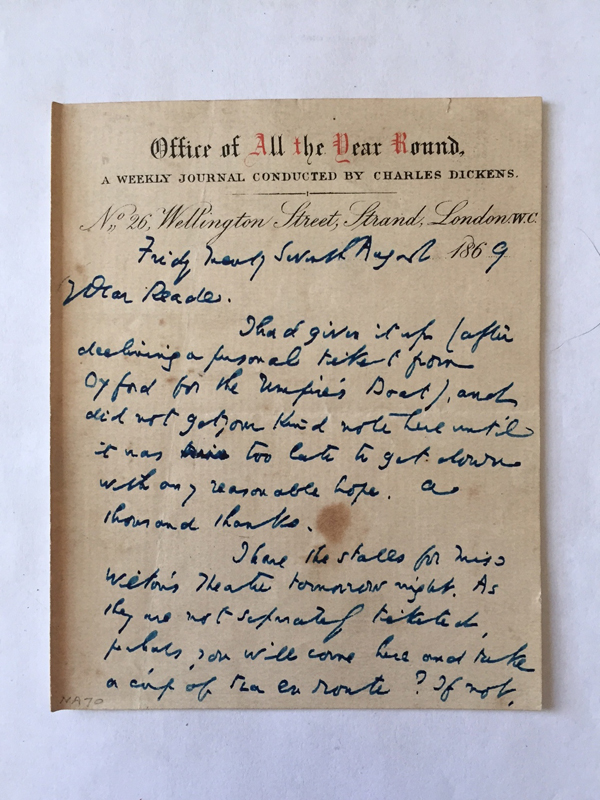 Office of All the Year Round,
A WEEKLY JOURNAL CONDUCTED BY CHARLES DICKENS.
No. 26, Wellington Street, Strand, London, W.C.
Friday Twenty Seventh August 1869
My Dear Reade.
I had given it up (after
declining a personal ticket from
Oxford for the Umpire's Boat), and
did not get your kind note here until
it was too late to get down
with any reasonable hope. A
thousand thanks.
I have the stalls for Miss
Wilton's Theatre tomorrow night. As
they are not separately ticketed,
perhaps you will come here and take
a cup of tea en route? If not,
NA70